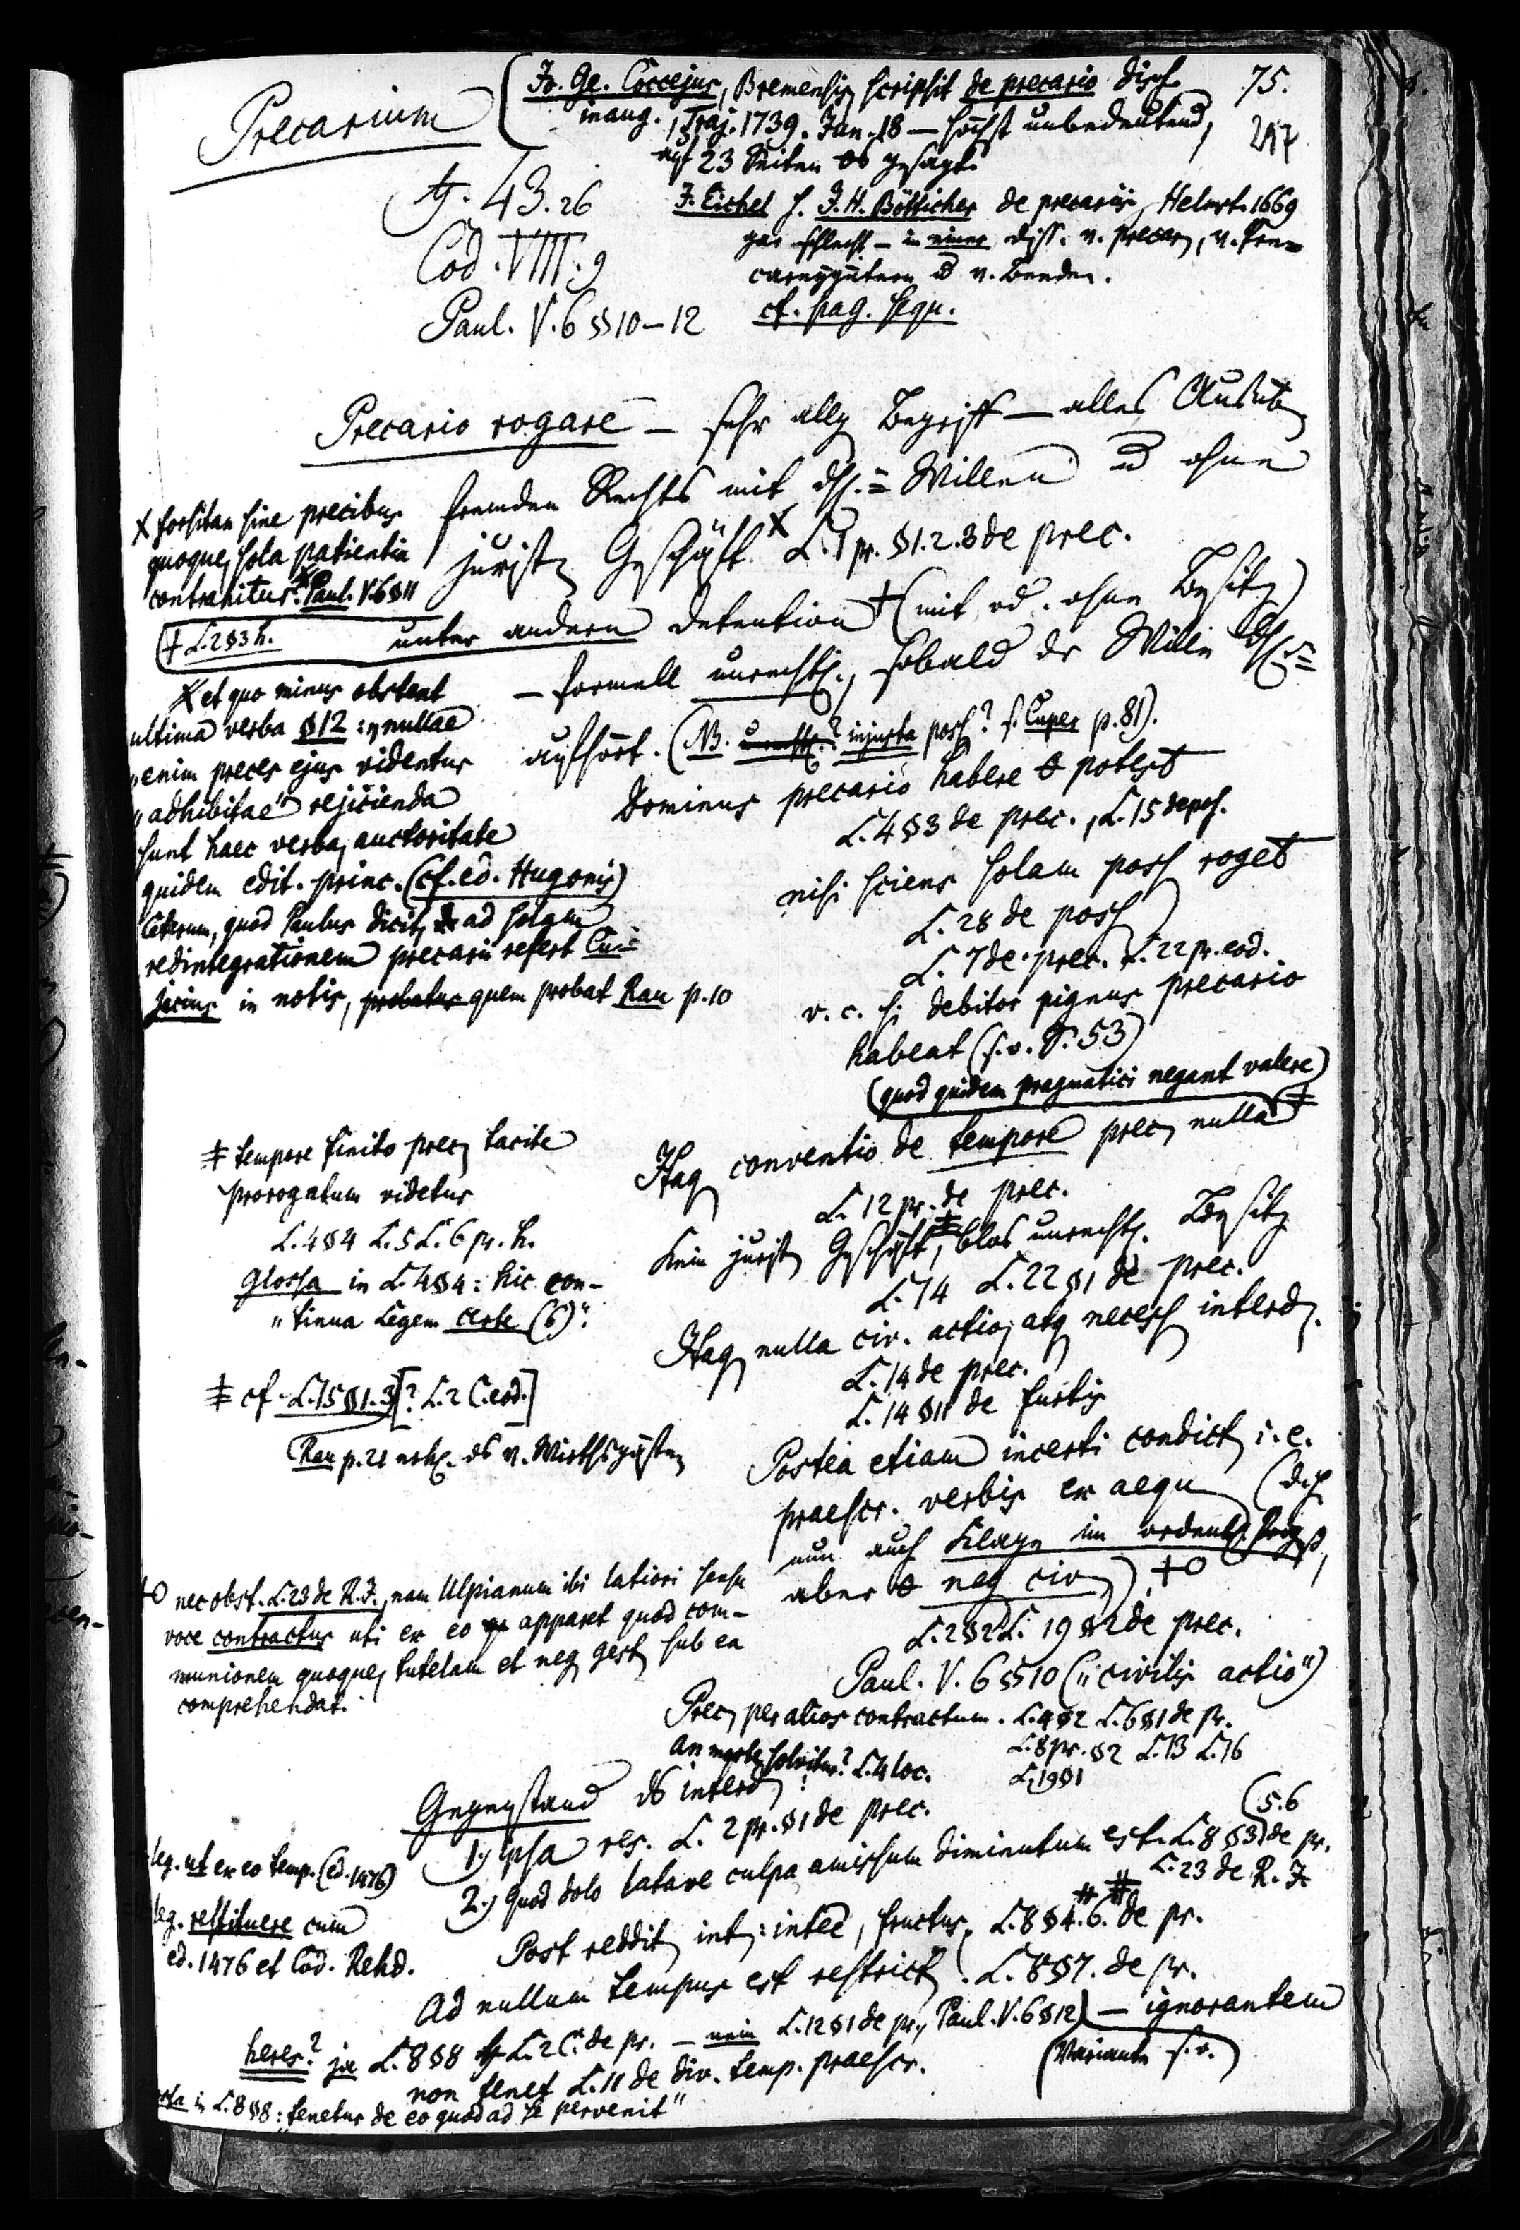 Precarium
Jo. Ge. Coccejus, Bremensis scripsit de precario disp.
inaug. Traj. 1739. Jan. 18 — höchst unbedeutend,
auf 23 Seiten gesagt.
75.
217.
tj. 43. 26
Cod. VIII. 9
Paul. V. 6 §§ 10–12
J. Eichel s. J. H. Bötticher de precariis, Helmst. 1669
gar schlecht – in einer Diss. v. precar, v. Pre=
careygütern v. Beeden.
cf. pag. sequ.
Precario rogare — sehr allg Begriff — alles Ausüb
fremden Rechts mit Willen ohne
jurist Geschäft x L. 1 pr. § 1. 2. 3 de prec.
unter andern Detention + (mit od. ohne Besitz)
— formell unrechtl., sobald dr Wille
aufhört. (NB. injusta poss? s. Cuper p. 81).
x forsitan sine precibus
quoque, sola patientia
contrahitur. Paul. V. 6 § 11
+ L. 2 § 3 h.
et quo minus obstent
ultima verba § 12: „nullae
„enim preces ejus videntur
„adhibitae" rejicienda
sunt haec verba, auctoritate
quidem edit. princ. (cf. ed. Hugonis)
Ceterum, quod Paulus dicit, ad solam
redintegrationem precarii refert Cu=
jacius in notis, quem probat Rau p. 10
Dominus precario habere potest
L. 4 § 3 de prec., L. 15 depos.
nisi sciens solam poss roget
L. 28 de poss
L. 7 de prec. L. 22 pr. eod.
v. c. si debitor pignus precario
habeat (s. v. S. 53)
(quod quidem pragmatici negant valere)
Itaq conventio de tempore prec nulla ‡
L. 12 pr. de prec.
‡ tempore finito prec tacite
prorogatum videtur
L. 4 § 4 L. 5 L. 6 pr. h.
Glossa in L. 4 § 4: hic con-
„tinua Legem certe (6)".
Kein jurist Geschäft, blos unrechtl. Besitz
L. 14 L. 22 § 1 de prec.
Itaq nulla civ. actio, atq necess interd.
L. 14 de prec.
L. 14 § 11 de furtis
‡ cf. L. 15 § 1. 3 [? L. 2 C. eod.]
Rau p. 21 v. Wirthsgästen
Postea etiam incerti condict i. e.
praescr. verbis ex aequ (d. h.
nun auch Klage im ordentl. Prozeß,
aber neg civ) +o
L. 2 § 2 L. 19 § 2 de prec.
Paul. V. 6 § 10 („civilis actio")
+o nec obst. L. 23 de R. J., nam Ulpianum ibi latiori sensu
voce contractus uti ex eo apparet quod com-
munionem quoque, tutelam et neg gest sub ea
comprehendat.
Prec per alios contractum. L. 4 § 2 L. 6 § 1 de pr.
L. 8 pr. § 2 L. 13 L. 16
L. 19 § 1
an morte solvitur? L. 4 loc.
Gegenstand ds interd!
1.) ipsa res. L. 2 pr. § 1 de prec.
2.) quod dolo latave culpa amissum diminutum est. L. 8 § 3 (5. 6 de pr.
L. 23 de R. J.
leg. ut ex eo temp. (ed. 1476)
leg. restituere cum
ed. 1476 et Cod. Rehd.
Post reddit int: interd, fructus. L. 8 § 4. 6. de pr.
Ad nullum tempus est restrict. L. 8 § 7. de pr.
heres? ja L. 8 § 8 L. 2 C. de pr. — nein L. 12 § 1 de pr, Paul. V. 6 § 12) — ignorantem
non tenet L. 11 de div. temp. praescr.
(Variante s. v.)
in L. 8 § 8: „tenetur de eo quod ad se pervenit"